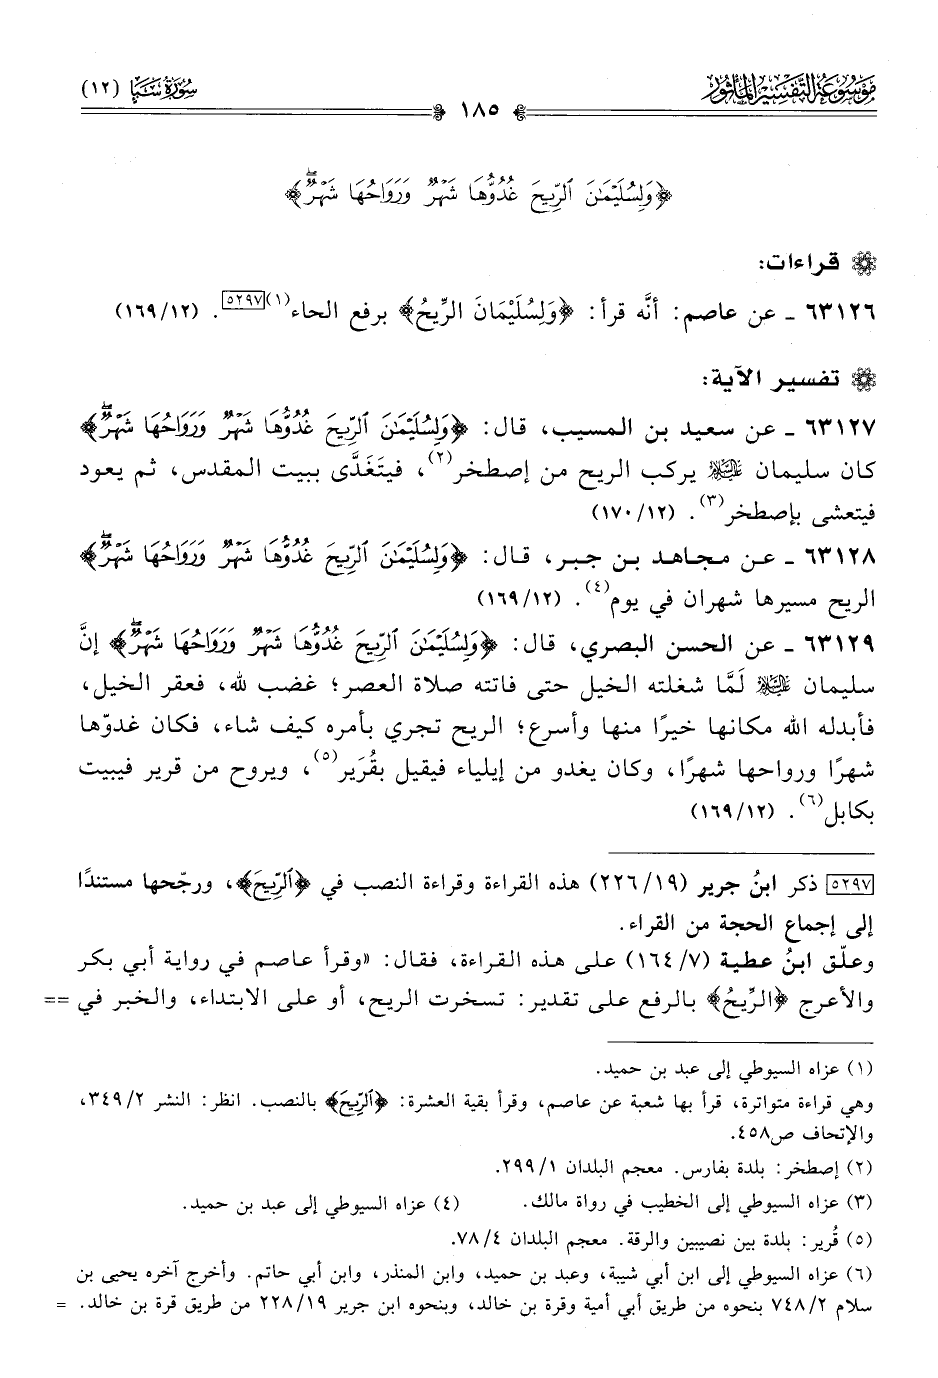 مَوْسُوعَة التَّفْسِيْر المَأْثُور
سُورَةُ سَبَإ (١٢)
١٨٥
﴿وَلِسُلَيْمَٰنَ ٱلرِّيحَ غُدُوُّهَا شَهْرٌ وَرَوَاحُهَا شَهْرٌۖ﴾
قراءات:
٦٣١٢٦ ـ عن عاصم: أنَّه قرأ: ﴿وَلِسُلَيْمَانَ الرِّيحُ﴾ برفع الحاء(١)[٥٢٩٧]. (١٦٩/١٢)
تفسير الآية:
٦٣١٢٧ ـ عن سعيد بن المسيب، قال: ﴿وَلِسُلَيْمَٰنَ ٱلرِّيحَ غُدُوُّهَا شَهْرٌ وَرَوَاحُهَا شَهْرٌۖ﴾
كان سليمان ﵇ يركب الريح من إصطخر(٢)، فيتَغَدَّى ببيت المقدس، ثم يعود
فيتعشى بإصطخر(٣). (١٧٠/١٢)
٦٣١٢٨ ـ عن مجاهد بن جبر، قال: ﴿وَلِسُلَيْمَٰنَ ٱلرِّيحَ غُدُوُّهَا شَهْرٌ وَرَوَاحُهَا شَهْرٌۖ﴾
الريح مسيرها شهران في يوم(٤). (١٦٩/١٢)
٦٣١٢٩ ـ عن الحسن البصري، قال: ﴿وَلِسُلَيْمَٰنَ ٱلرِّيحَ غُدُوُّهَا شَهْرٌ وَرَوَاحُهَا شَهْرٌۖ﴾ إنَّ
سليمان ﵇ لَمَّا شغلته الخيل حتى فاتته صلاة العصر؛ غضب لله، فعقر الخيل،
فأبدله الله مكانها خيرًا منها وأسرع؛ الريح تجري بأمره كيف شاء، فكان غدوّها
شهرًا ورواحها شهرًا، وكان يغدو من إيلياء فيقيل بقُرَير(٥)، ويروح من قرير فيبيت
بكابل(٦). (١٦٩/١٢)
[٥٢٩٧] ذكر ابنُ جرير (٢٢٦/١٩) هذه القراءة وقراءة النصب في ﴿ٱلرِّيحَ﴾، ورجّحها مستندًا
إلى إجماع الحجة من القراء.
وعلّق ابنُ عطية (١٦٤/٧) على هذه القراءة، فقال: «وقرأ عاصم في رواية أبي بكر
والأعرج ﴿الرِّيحُ﴾ بالرفع على تقدير: تسخرت الريح، أو على الابتداء، والخبر في ==
(١) عزاه السيوطي إلى عبد بن حميد.
وهي قراءة متواترة، قرأ بها شعبة عن عاصم، وقرأ بقية العشرة: ﴿ٱلرِّيحَ﴾ بالنصب. انظر: النشر ٣٤٩/٢،
والإتحاف ص٤٥٨.
(٢) إصطخر: بلدة بفارس. معجم البلدان ٢٩٩/١.
(٣) عزاه السيوطي إلى الخطيب في رواة مالك. (٤) عزاه السيوطي إلى عبد بن حميد.
(٥) قُرير: بلدة بين نصيبين والرقة. معجم البلدان ٧٨/٤.
(٦) عزاه السيوطي إلى ابن أبي شيبة، وعبد بن حميد، وابن المنذر، وابن أبي حاتم. وأخرج آخره يحيى بن
سلام ٧٤٨/٢ بنحوه من طريق أبي أمية وقرة بن خالد، وبنحوه ابن جرير ٢٢٨/١٩ من طريق قرة بن خالد. =